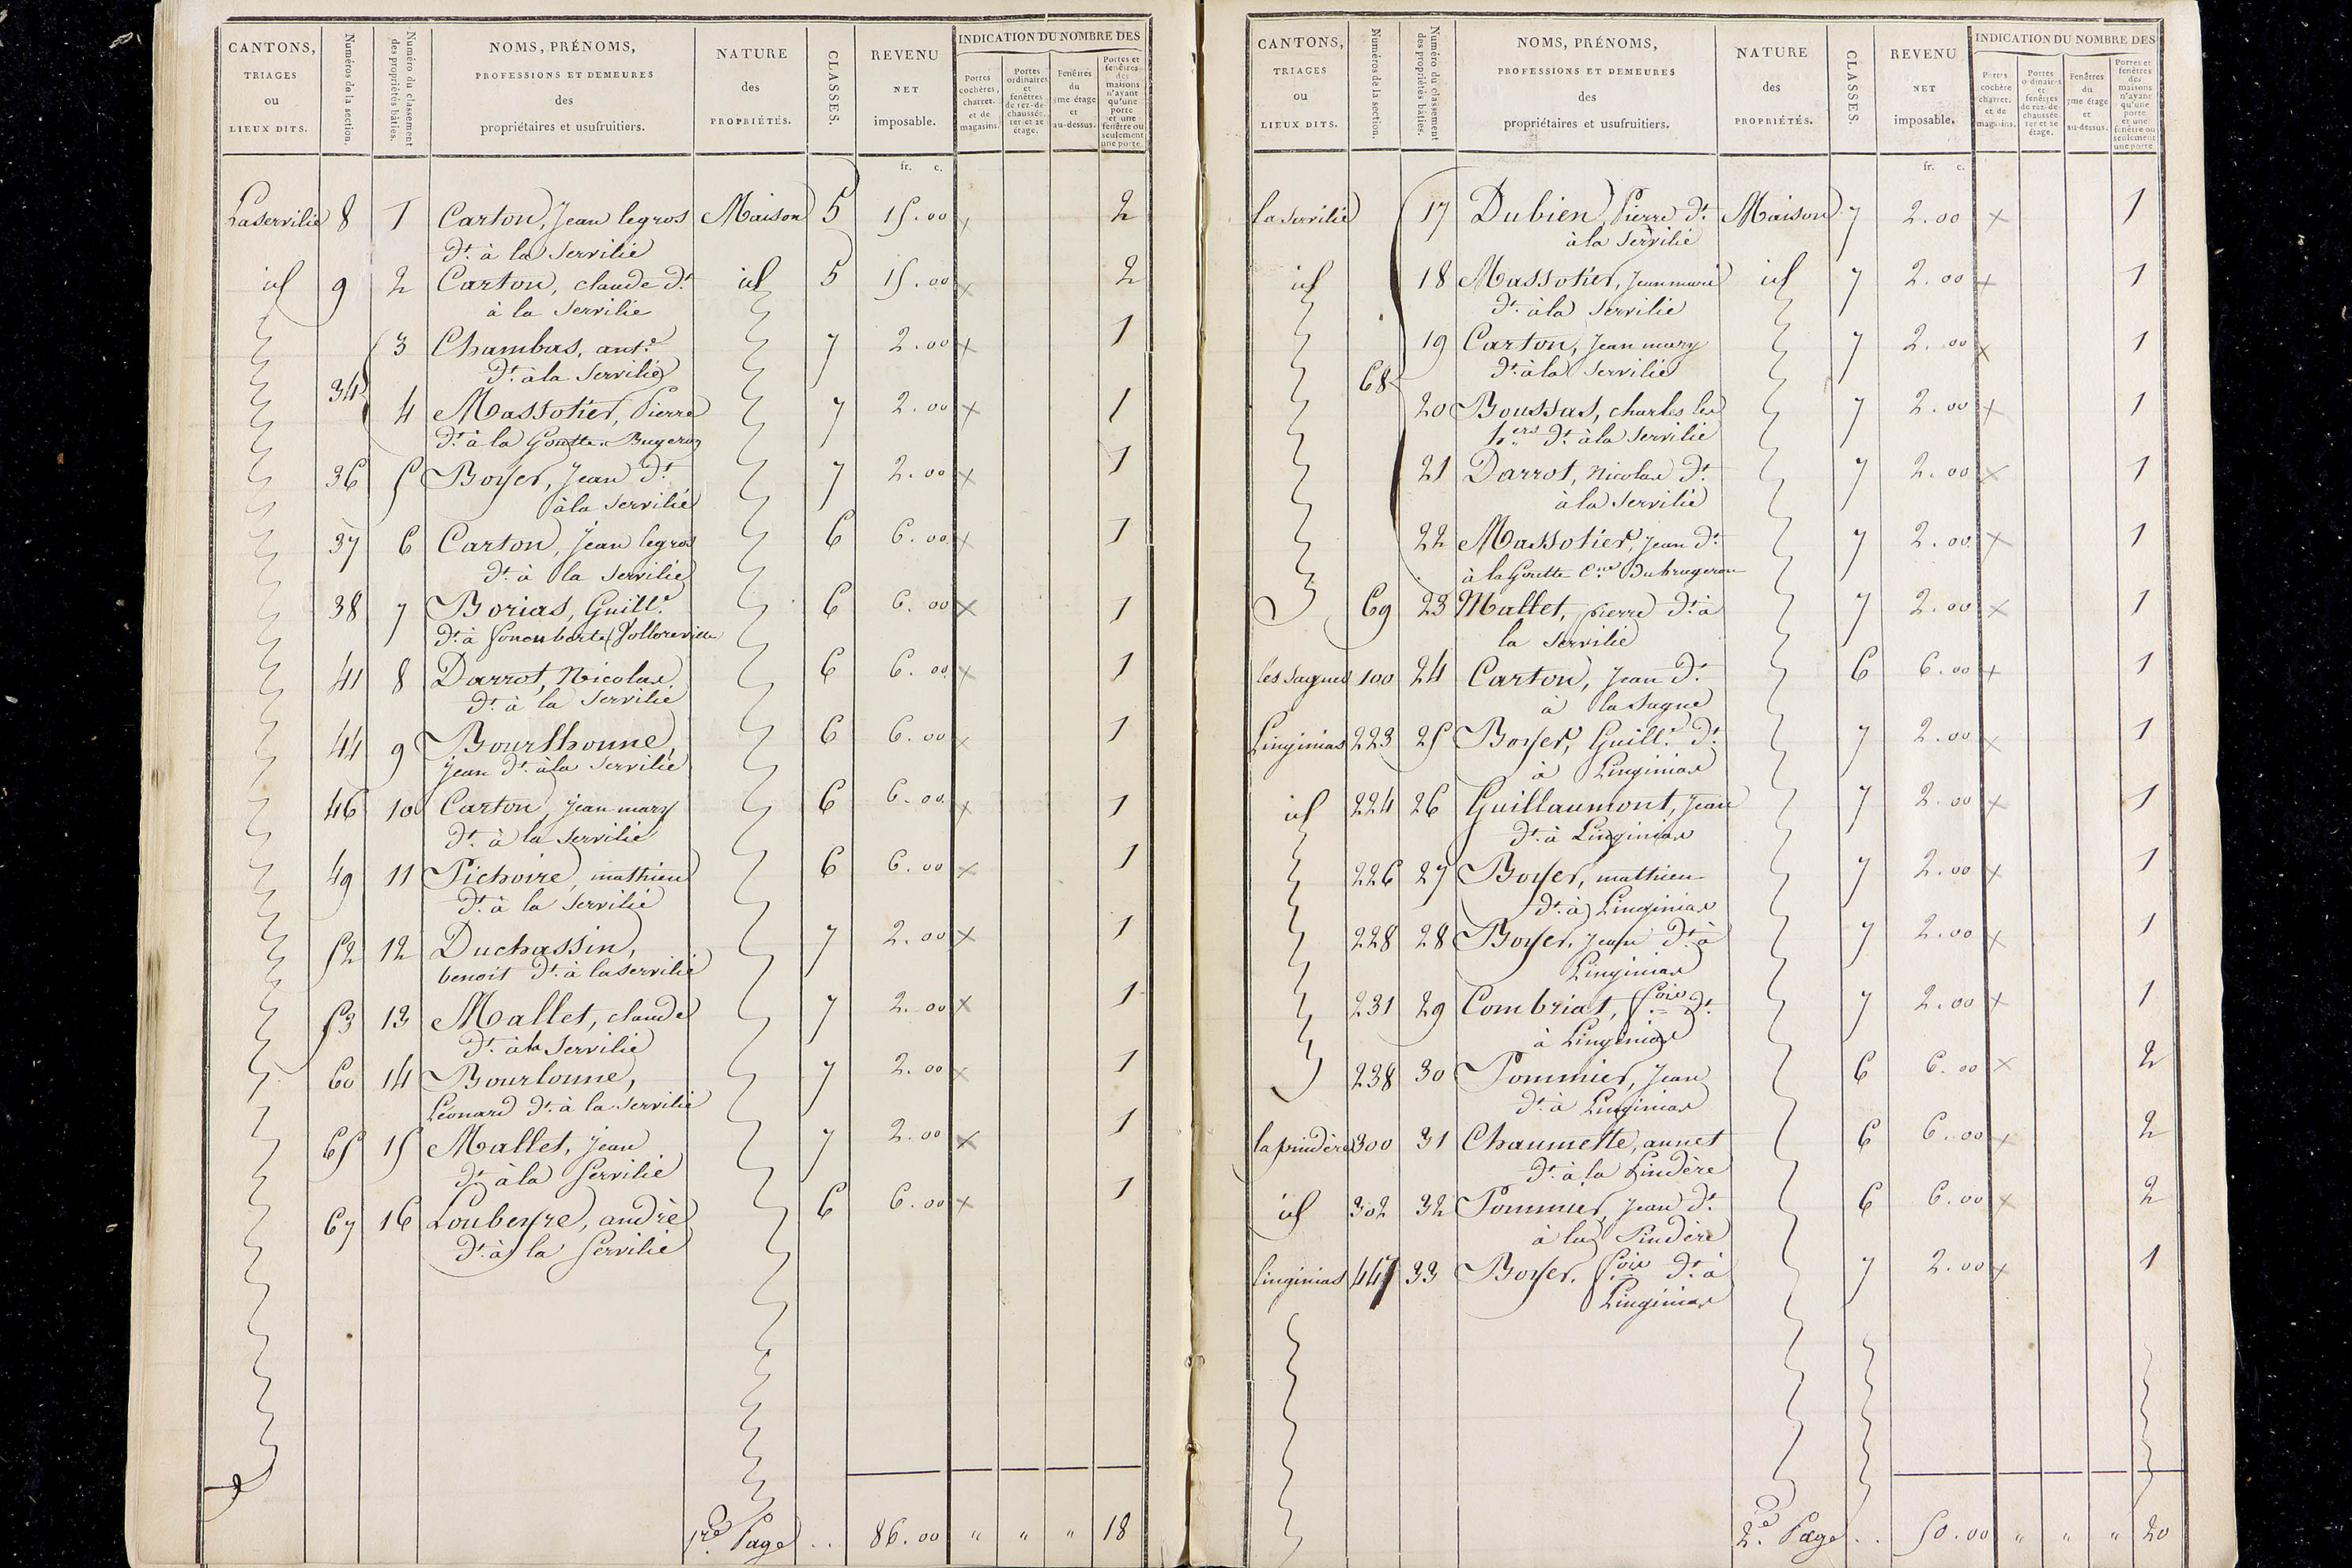 CANTONS, TRIAGES ou LIEUX DITS. | Numéros de la section. | Numéro du classement des propriétés bâties. | NOMS, PRÉNOMS, PROFESSIONS ET DEMEURES des propriétaires et usufruitiers. | NATURE des PROPRIÉTÉS. | CLASSES. | REVENU NET imposable. | INDICATION DU NOMBRE DES
Portes cochères, charret. et de magasins. | Portes ordinaires et fenêtres de rez-de-chaussée, 1er et 2e étage. | Fenêtres du 3me étage et au-dessus. | Portes et fenêtres des maisons n'ayant qu'une porte et une fenêtre ou seulement une porte.
fr. c.
Laservilie 8 1 Carton, Jean legros Maison 5 15.00 x 2
dt. à la Servilie
id 9 2 Carton, claude dt. id 5 15.00 x 2
à la Servilie
3 Chambas, ant.e 7 2.00 x 1
dt. à la Servilie
34
4 Massotier, Pierre 7 2.00 x 1
dt. à la Goutte. Bugeron
36 5 Boyer, Jean dt. 7 2.00 x 1
à la Servilie
37 6 Carton, Jean legros 6 6.00 x 1
dt. à la Servilie
38 7 Borias, Guill.e 6 6.00 x 1
41 8 Darrot, Nicolas 6 6.00 x 1
dt. à la Servilie
44 9 Bourlhonne, 6 6.00 x 1
jean dt. à la Servilie
46 10 Carton, jean mary 6 6.00 x 1
dt. à la Servilie
49 11 Pichoire, mathieu 6 6.00 x 1
dt. à la Servilie
52 12 Duchassin, 7 2.00 x 1
benoit dt. à laservilie
53 13 Mallet, claude 7 2.00 x 1
dt. à la Servilie
60 14 Bourlonne, 7 2.00 x 1
Léonard dt. à la Servilie
65 15 Mallet, jean 7 2.00 x 1
dt. à la Servilie
67 16 Loubeyre, andré 6 6.00 x 1
dt. à la Servilie
1re Page .. 86.00 " " " 18
CANTONS, TRIAGES ou LIEUX DITS. | Numéros de la section. | Numéro du classement des propriétés bâties. | NOMS, PRÉNOMS, PROFESSIONS ET DEMEURES des propriétaires et usufruitiers. | NATURE des PROPRIÉTÉS. | CLASSES. | REVENU NET imposable. | INDICATION DU NOMBRE DES
Portes cochère charret. et de magasins. | Portes ordinaires et fenêtres de rez-de-chaussée 1er et 2e étage. | Fenêtres du 3me étage et au-dessus. | Portes et fenêtres des maisons n'ayant qu'une porte et une fenêtre ou seulement une porte
fr. c.
la Servilie 17 Dubien, Pierre dt. Maison 7 2.00 x 1
à la Servilie
id 18 Massotier, jean marie id 7 2.00 x 1
dt. à la Servilie
19 Carton, Jean mary 7 2.00 x 1
dt. à la Servilie
68
20 Boussas, charles les 7 2.00 x 1
h.ers dt. à la Servilie
21 Darrot, Nicolas dt. 7 2.00 x 1
à la Servilie
22 Massotier, jean dt. 7 2.00 x 1
à la Goutte C.ne Dubrugeron
69 23 Mallet, pierre dt. à 7 2.00 x 1
la Servilie
les Sagnes 100 24 Carton, Jean dt. 6 6.00 x 1
à la Sagne
Linginias 223 25 Boyer, Guill.e dt. 7 2.00 x 1
à Linginias
id 224 26 Guillaumont, Jean 7 2.00 x 1
dt. à Linginias
226 27 Boyer, mathieu 7 2.00 x 1
dt. à Linginias
228 28 Boyer, jean dt. à 7 2.00 x 1
Linginias
231 29 Combriat, f.ois dt. 7 2.00 x 1
à Linginias
238 30 Pommier, Jean 6 6.00 x 2
dt. à Linginias
la pindère 300 31 Chaumette, annet 6 6.00 x 2
dt. à la Pindère
id 302 32 Pommier, Jean dt. 6 6.00 x 2
à la Pindère
linginias 447 33 Boyer, f.ois dt. à 7 2.00 x 1
Linginias
2.e Page .. 50.00 " " " 20